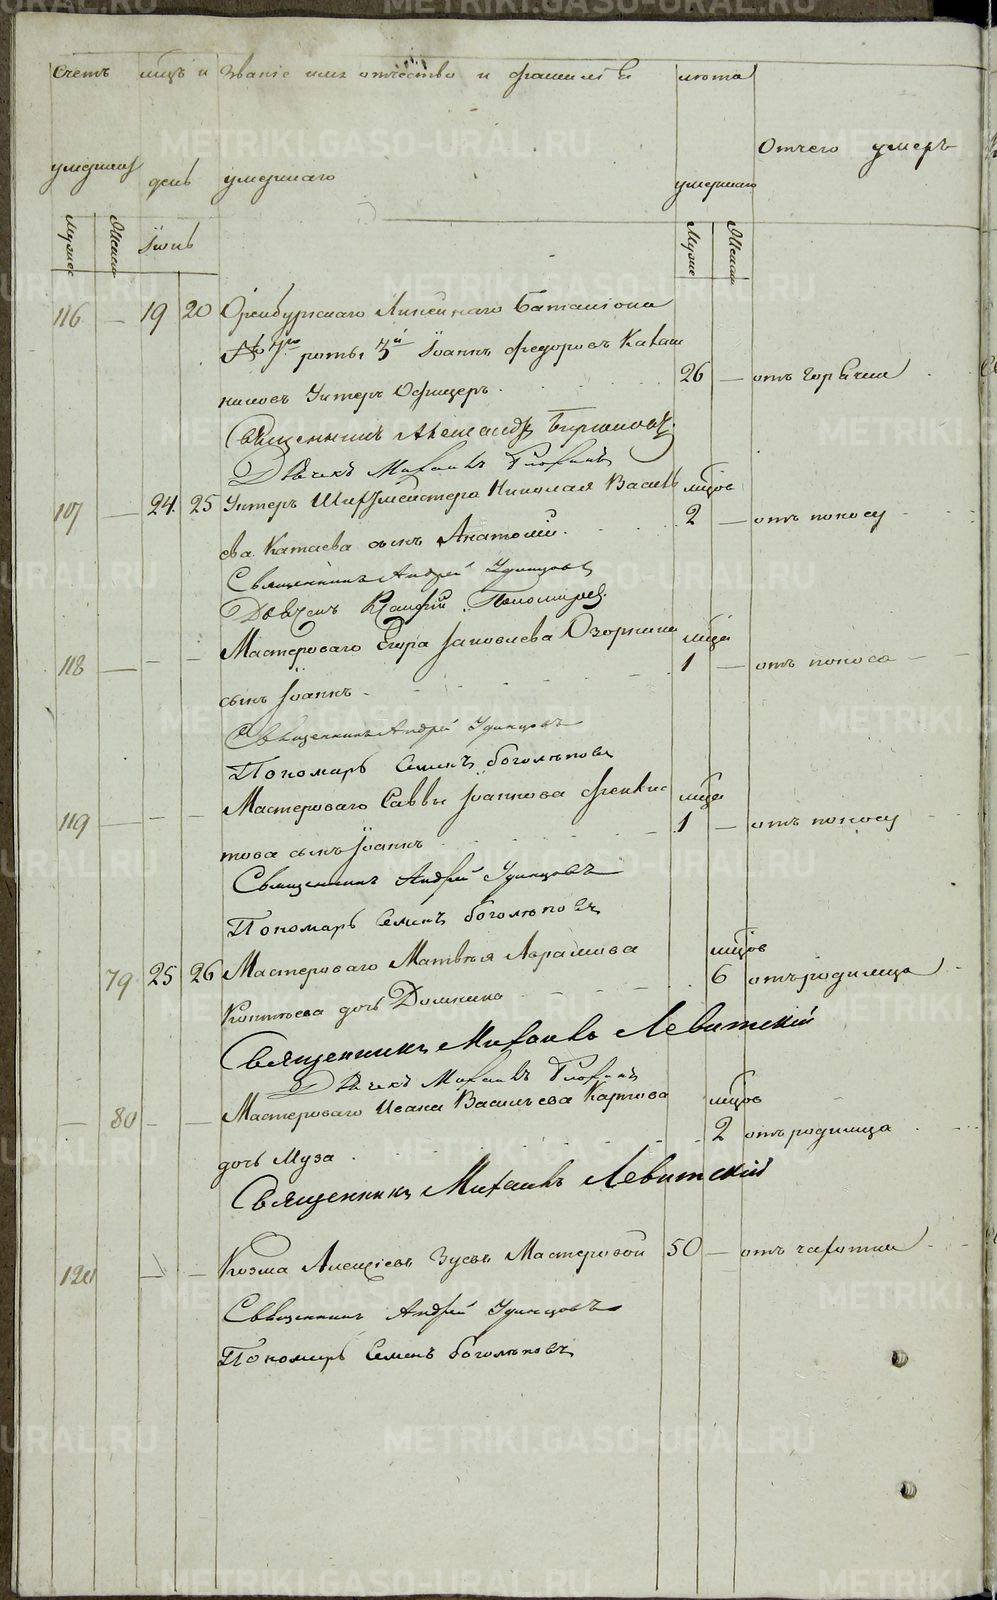 Счетъ мцъ и Званіе имя отчество и фамилія лѣта
Отчего умеръ
умершихъ день умершаго умершаго
мужес Женск Іюнь Муже Женск
116 — 19 20 Оренбургскаго Линейнаго Баталіона
№ 7го роты 3й Іоаннъ Федоровъ
26 — отъ горячки
Унтеръ Офицеръ.
Священникъ Александръ
Дьячекъ Михаилъ
107 — 24. 25 Унтеръ Шихтмейстера Николая Василь мцовъ
2 — отъ поносу
ева Катаева сынъ Анатолій.
Священникъ Андрей Удинцовъ
Дьячекъ Пономаревъ
Мастероваго Егора Іаковлева мцъ
118 — — — 1 — отъ поноса
сынъ Іоаннъ
Священникъ Андрей Удинцовъ
Пономарь Семенъ Боголѣповъ
Мастероваго Саввы Іоаннова Феклис мцъ
119 — — — 1 — отъ поносу
това сынъ Іоаннъ
Священникъ Андрей Удинцовъ
Пономарь Семенъ Боголѣповъ
79 25 26 Мастероваго Матвѣя Абрамова мцовъ
6 отъ родимца
дочь Домнина
Священникъ Михаилъ Левитскій
Дьячекъ Михаилъ
— 80 — — Мастероваго Ивана Васильева Карпова мцовъ
2 отъ родимца
дочь Муза
Священникъ Михаилъ Левитскій
120 — — Козма Алексіевъ Зуевъ Мастеровой 50 — отъ чахотки
Священникъ Андрей Удинцовъ
Пономарь Семенъ Боголѣповъ
METRIKI.GASO-URAL.RU